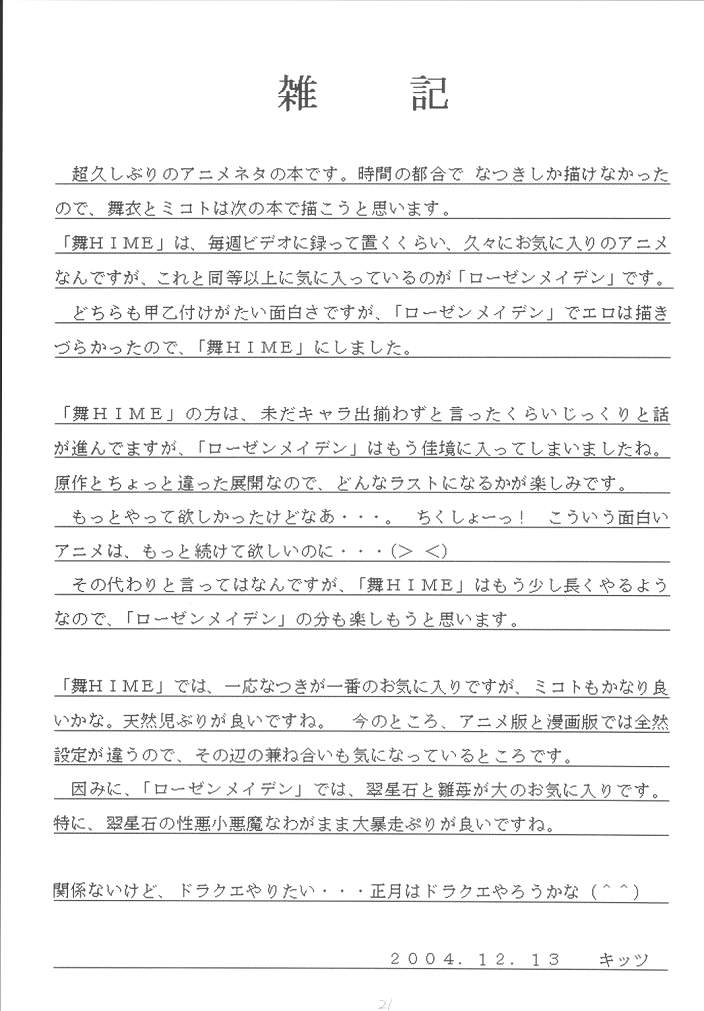 雑　記
　超久しぶりのアニメネタの本です。時間の都合で なつきしか描けなかった
ので、舞衣とミコトは次の本で描こうと思います。
「舞ＨＩＭＥ」は、毎週ビデオに録って置くくらい、久々にお気に入りのアニメ
なんですが、これと同等以上に気に入っているのが「ローゼンメイデン」です。
　どちらも甲乙付けがたい面白さですが、「ローゼンメイデン」でエロは描き
づらかったので、「舞ＨＩＭＥ」にしました。
「舞ＨＩＭＥ」の方は、未だキャラ出揃わずと言ったくらいじっくりと話
が進んでますが、「ローゼンメイデン」はもう佳境に入ってしまいましたね。
原作とちょっと違った展開なので、どんなラストになるかが楽しみです。
　もっとやって欲しかったけどなあ・・・。　ちくしょーっ！　こういう面白い
アニメは、もっと続けて欲しいのに・・・(＞ ＜)
　その代わりと言ってはなんですが、「舞ＨＩＭＥ」はもう少し長くやるよう
なので、「ローゼンメイデン」の分も楽しもうと思います。
「舞ＨＩＭＥ」では、一応なつきが一番のお気に入りですが、ミコトもかなり良
いかな。天然児ぶりが良いですね。　今のところ、アニメ版と漫画版では全然
設定が違うので、その辺の兼ね合いも気になっているところです。
　因みに、「ローゼンメイデン」では、翠星石と雛苺が大のお気に入りです。
特に、翠星石の性悪小悪魔なわがまま大暴走ぷりが良いですね。
関係ないけど、ドラクエやりたい・・・正月はドラクエやろうかな（＾＾）
２００４．１２．１３　　キッツ
21